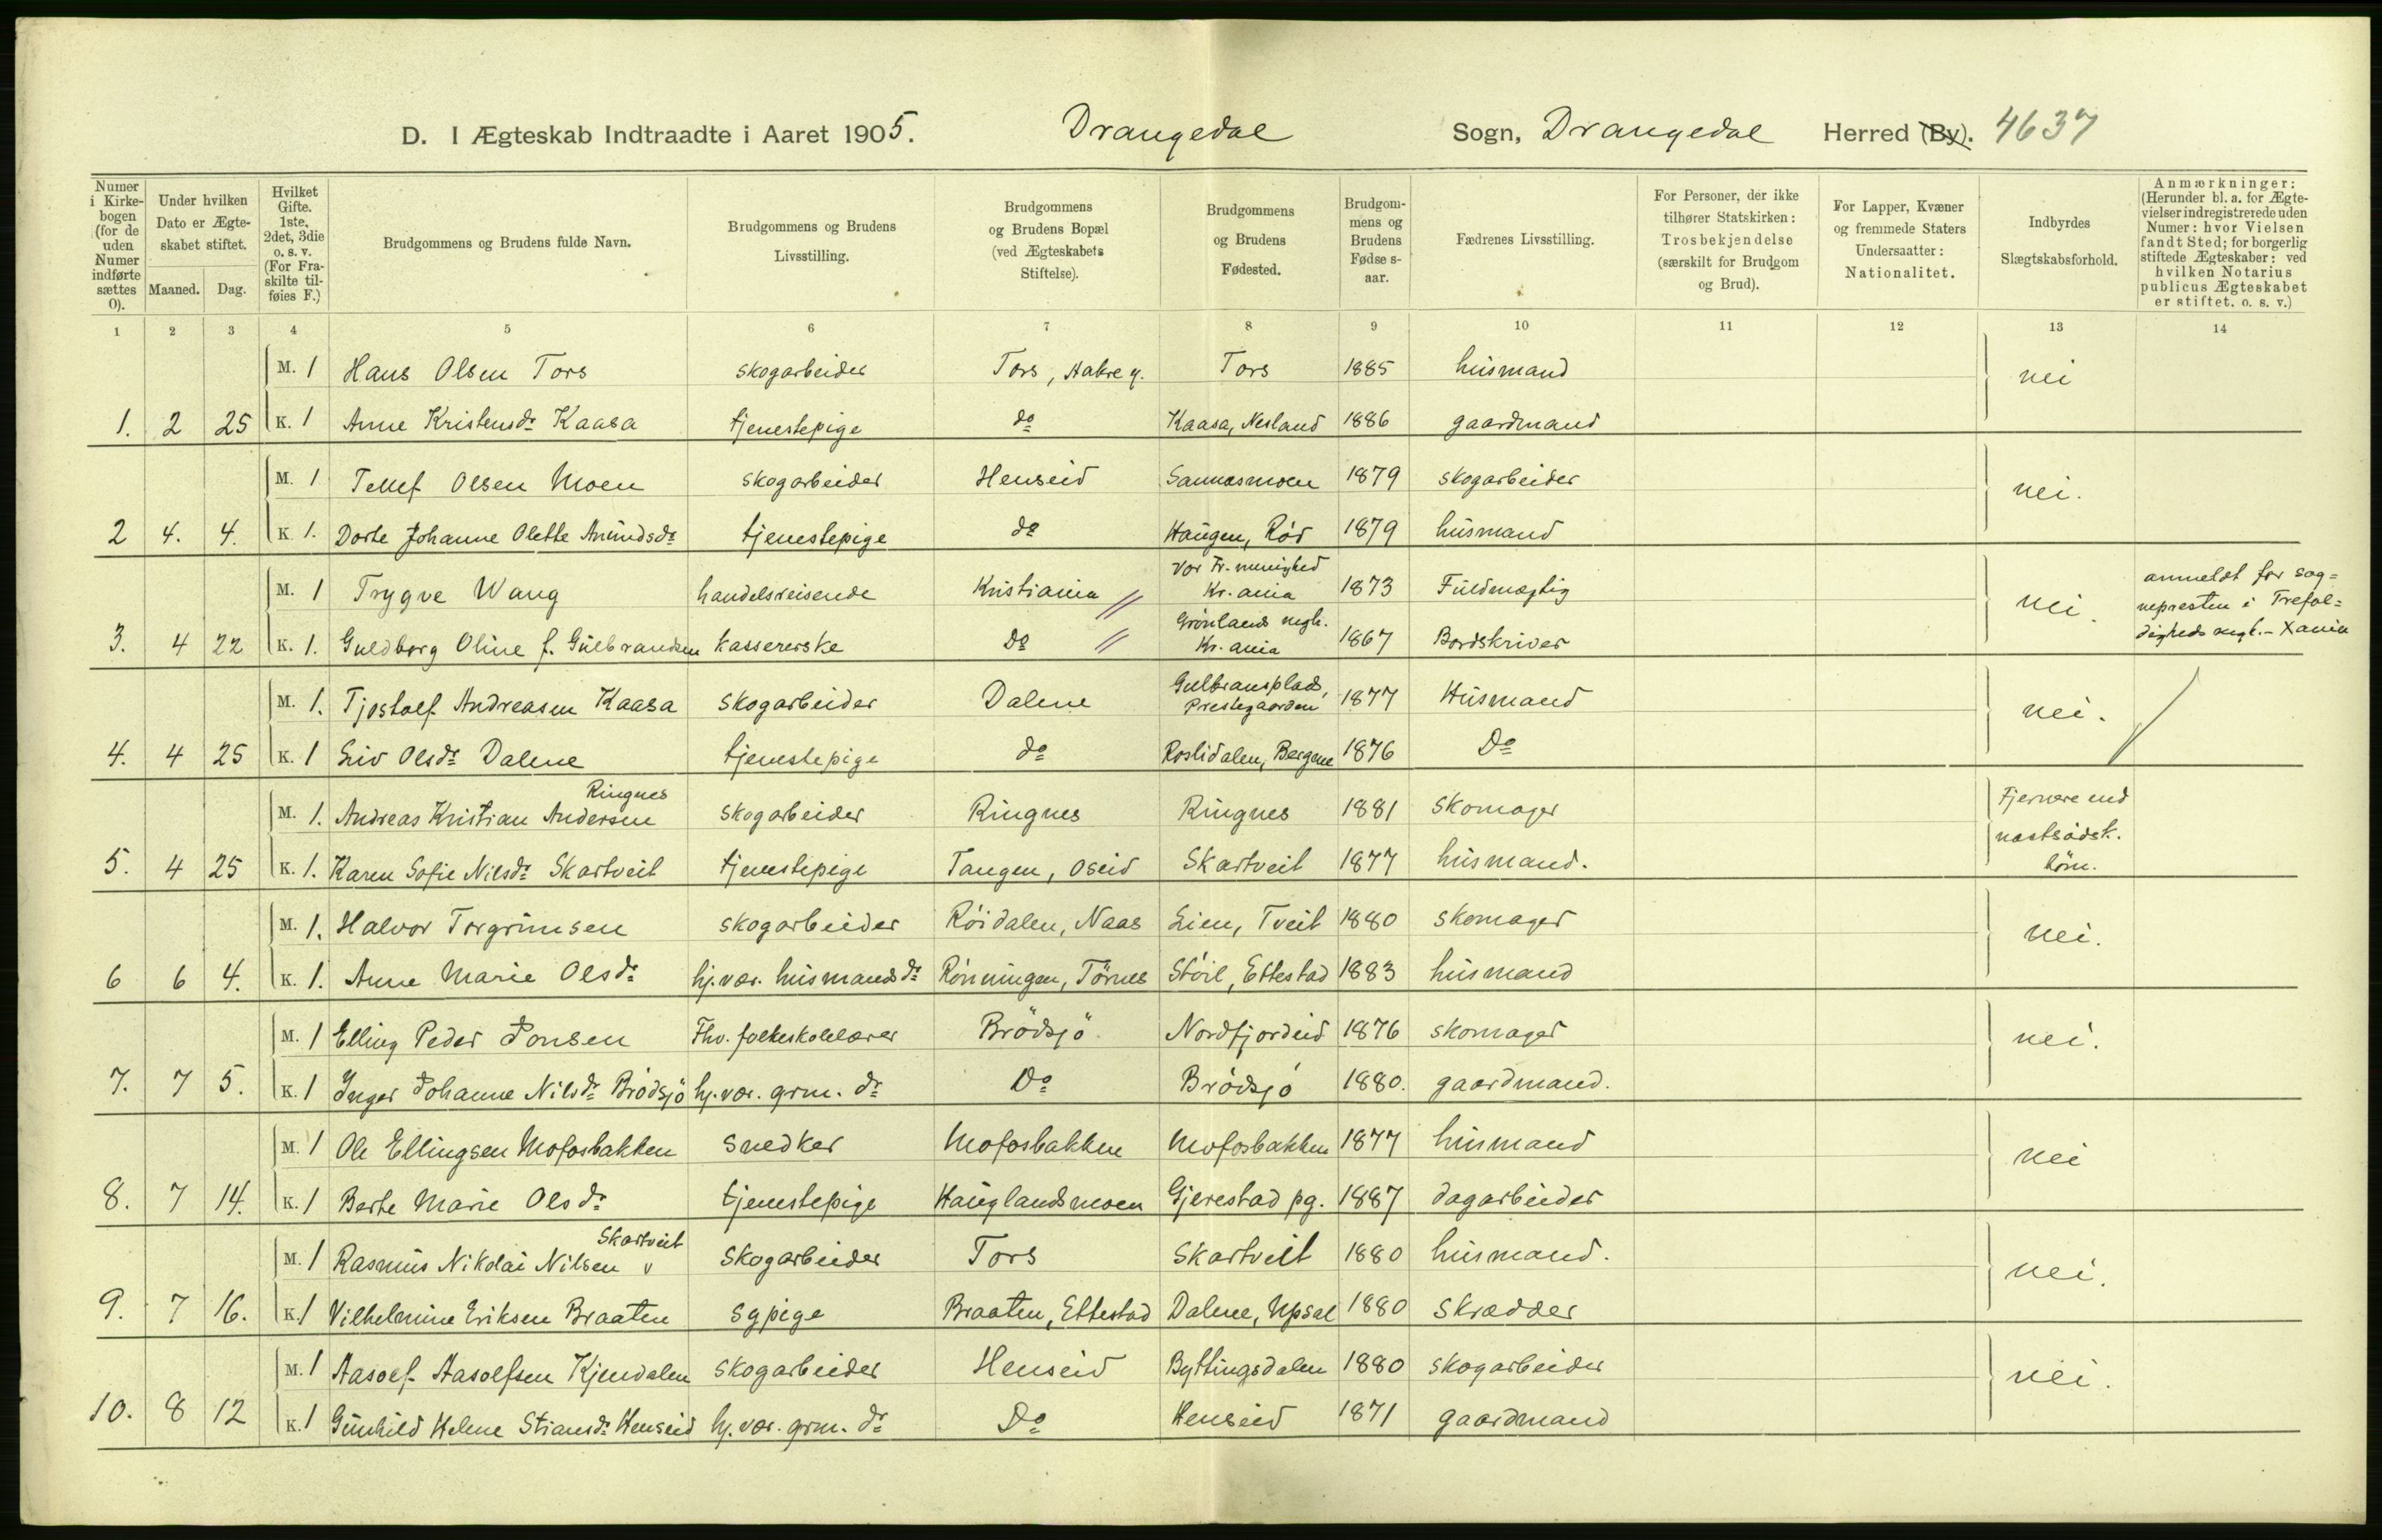 D. I Ægteskab Indtraadte i Aaret 1905. Drangedal Sogn, Drangedal Herred (By). 4637
Numer i Kirkebogen (for de uden Numer indførte sættes 0).
Under hvilken Dato er Ægteskabet stiftet.
Maaned. Dag.
Hvilket Gifte. 1ste, 2det, 3die o. s. v. (For Fraskilte tilføies F.)
Brudgommens og Brudens fulde Navn.
Brudgommens og Brudens Livsstilling.
Brudgommens og Brudens Bopæl (ved Ægteskabets Stiftelse).
Brudgommens og Brudens Fødested.
Brudgommens og Brudens Fødsels-aar.
Fædrenes Livsstilling.
For Personer, der ikke tilhører Statskirken: Trosbekjendelse (særskilt for Brudgom og Brud).
For Lapper, Kvæner og fremmede Staters Undersaatter: Nationalitet.
Indbyrdes Slægtskabsforhold.
Anmærkninger: (Herunder bl. a. for Ægtevielser indregistrerede uden Numer: hvor Vielsen fandt Sted; for borgerlig stiftede Ægteskaber: ved hvilken Notarius publicus Ægteskabet er stiftet. o. s. v.)
1 2 3 4 5 6 7 8 9 10 11 12 13 14
M. 1 Hans Olsen Tors skogarbeider Tors, Aabre g. Tors 1885 husmand nei
1. 2 25 K. 1 Anne Kristensdr Kaasa tjenestepige do Kaasa, Nesland 1886 gaardmand
M. 1 Tellef Olsen Moen skogarbeider Henseid Sannasmoen 1879 skogarbeider nei.
2 4. 4. K 1. Dorte Johanne Olette Amundsdr tjenestepige do Haugen, Rör 1879 husmand
M. 1 Trygve Wang handelsreisende Kristiania Vor Fr. menighed Kr. ania 1873 Fuldmægtig nei. anmeldt for sognepresten i Trefoldigheds mgh. - Xania
3. 4 22 K. 1. Guldborg Oline f. Gulbrandsen kassererske Do Grønlands mgh. Kr. ania 1867 Bordskriver
M. 1. Tjostolf Andreasen Kaasa skogarbeider Dalene Gulbransplads, Prestegaarden 1877 Husmand nei.
4. 4 25 K. 1 Liv Olsdr Dalene tjenestepige do Roslidalen, Bergene 1876 Do
M. 1. Andreas Kristian Andersen Ringnes skogarbeider Ringnes Ringnes 1881 skomager Fjernere end
5. 4 25 K. 1. Karen Sofie Nilsdr Skartveit tjenestepige Tangen, Oseid Skartveit 1877 husmand. næstsödsk. börn.
M. 1. Halvor Torgrimsen skogarbeider Röidalen, Naas Lien, Tveit 1880 skomager nei.
6 6 4. K. 1. Anne Marie Olsdr hj.vær. husmandsdr Rönningen, Törnes Stöil, Ettestad 1883 husmand
M. 1 Elling Peder Jonsen Fhv. folkeskolelærer Brödsjö Nordfjordeid 1876 skomager nei.
7. 7 5. K. 1 Inger Johanne Nilsdr Brödsjö hj.vær. grm. dr Do Brödsjö 1880. gaardmand.
M. 1 Ole Ellingsen Mofosbakken snedker Mofosbakken Mofosbakken 1877 husmand nei
8. 7 14. K. 1 Berte Marie Olsdr tjenestepige Hauglandsmoen Gjerestad pg. 1887 dagarbeider
M. 1 Rasmus Nikolai Nilsen v Skartveit skogarbeider Tors Skartveit 1880 husmand. nei.
9. 7 16. K. 1 Vilhelmine Eriksen Braaten sypige Braaten, Ettestad Dalene, Upsal 1880 skrædder
M. 1 Aasolf Aasolfsen Kjendalen skogarbeider Henseid Byttingsdalen 1880 skogarbeider nei.
10. 8 12 K. 1 Gunhild Helene Stiansdr Henseid hj.vær. grm. dr Do Henseid 1871 gaardmand